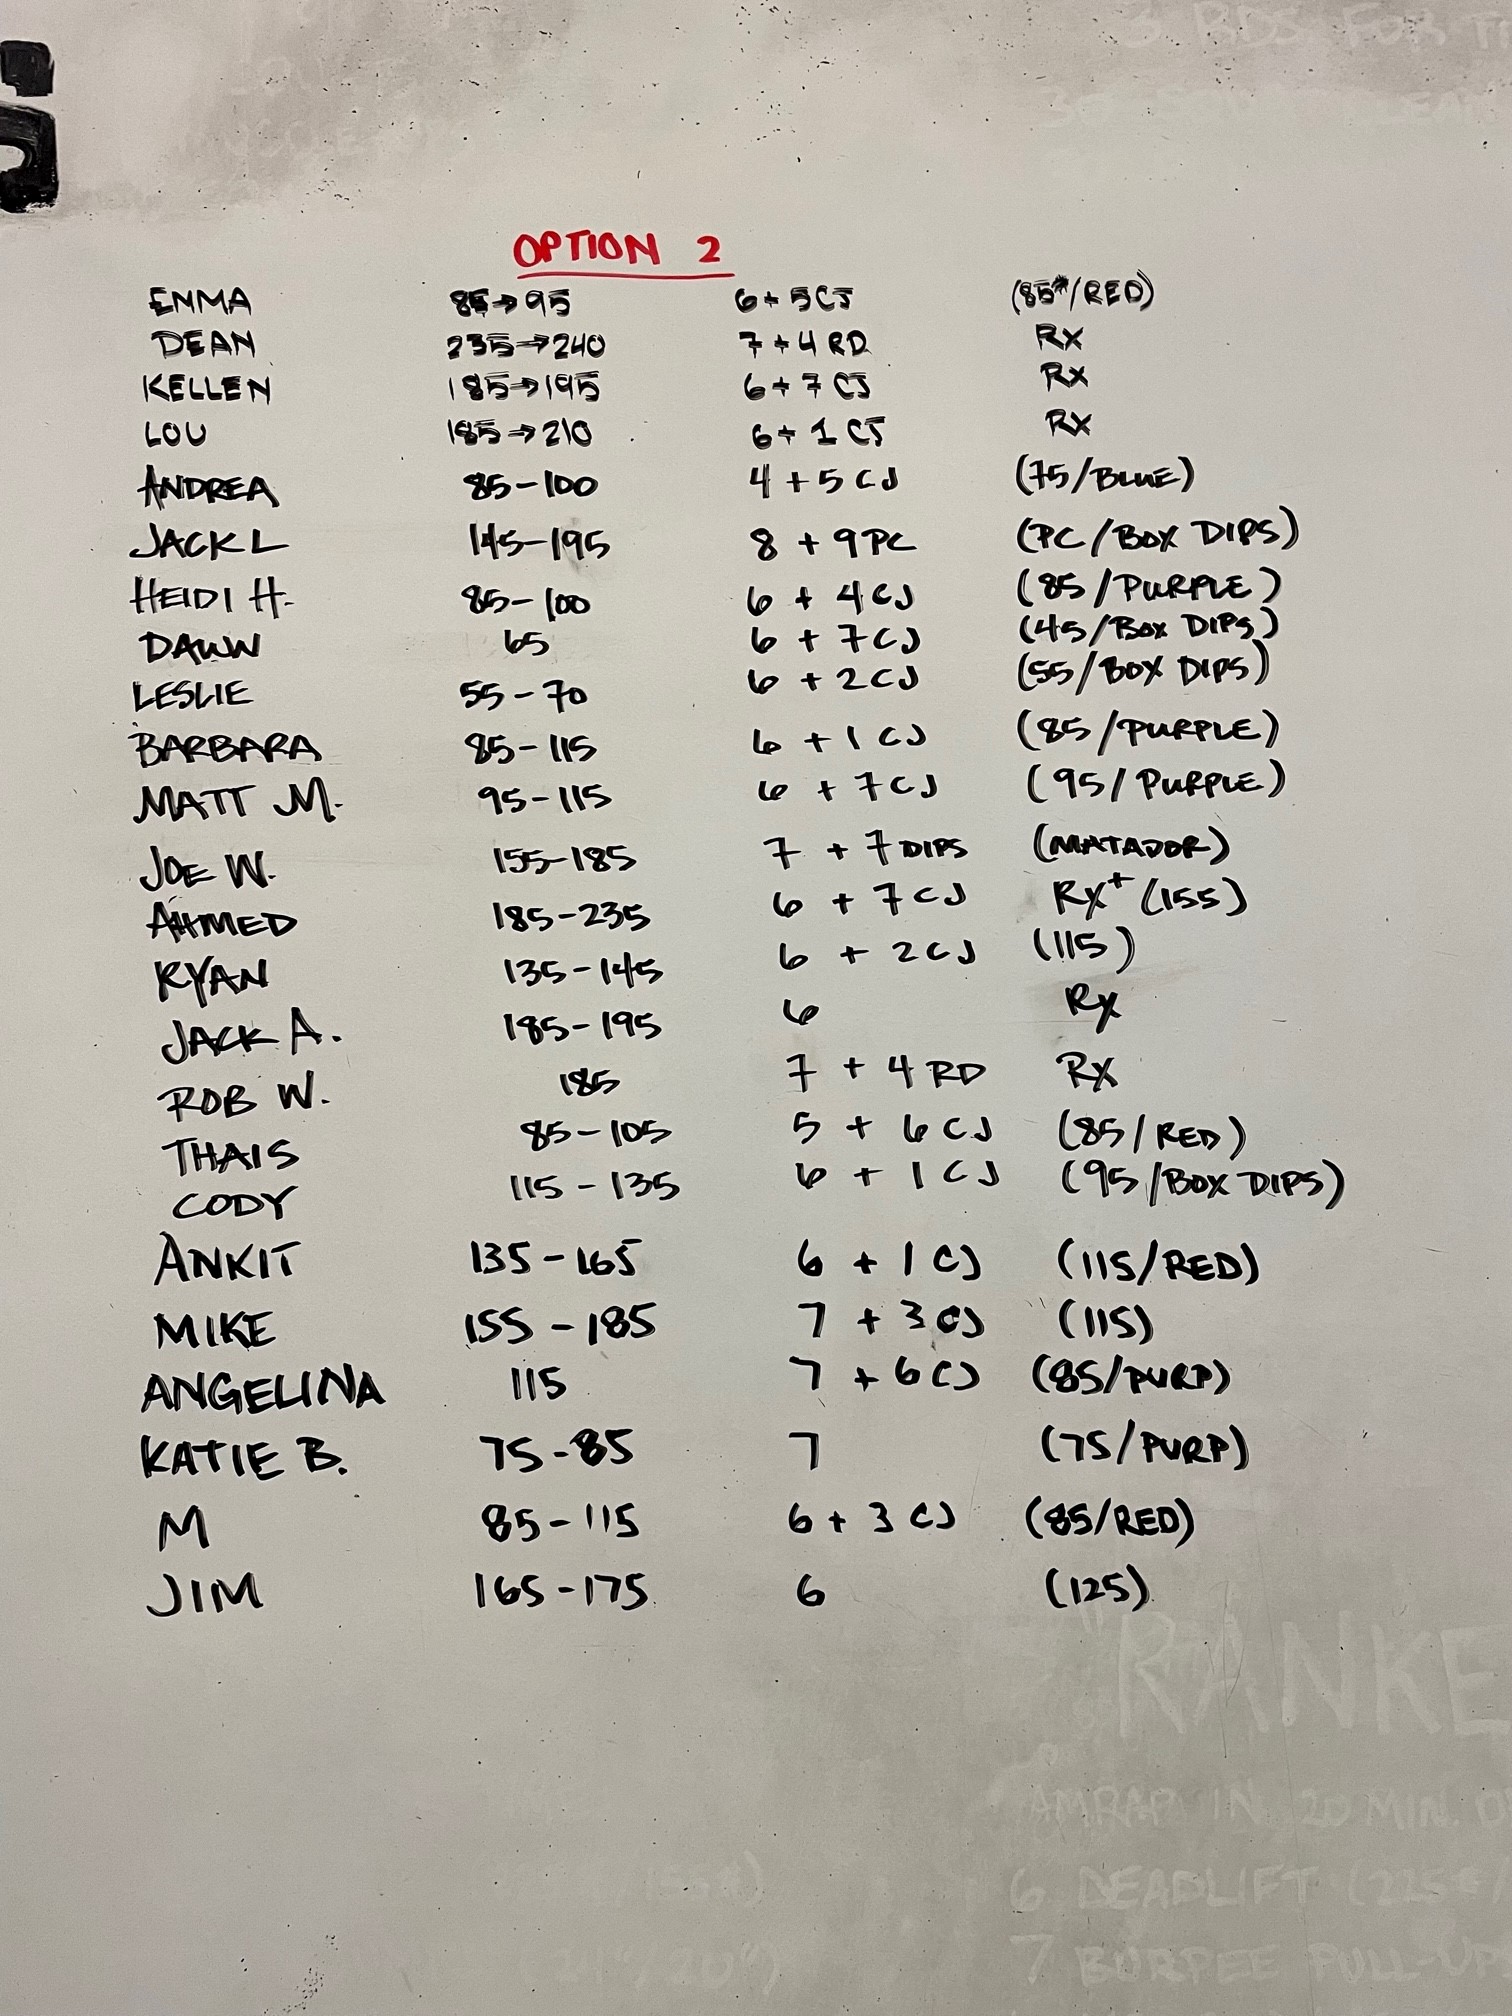 3 RDS FOR
OPTION 2
EMMA 85→95 6+5CJ (85#/RED)
DEAN 235→240 7+4 RD Rx
KELLEN 185→195 6+7 CJ Rx
LOU 185→210 6+1 CJ Rx
ANDREA 85-100 4+5 CJ (75/BLUE)
JACK L 145-195 8 + 9 PC (PC/BOX DIPS)
HEIDI H. 85-100 6 + 4 CJ (85/PURPLE)
DAWN 65 6 + 7 CJ (45/BOX DIPS)
LESLIE 55-70 6 + 2 CJ (55/BOX DIPS)
BARBARA 85-115 6 + 1 CJ (85/PURPLE)
MATT M. 95-115 6 + 7 CJ (95/PURPLE)
JOE W. 155-185 7 + 7 DIPS (MATADOR)
AHMED 185-235 6 + 7 CJ Rx+ (155)
RYAN 135-145 6 + 2 CJ (115)
JACK A. 185-195 6 Rx
ROB W. 185 7 + 4 RD Rx
THAIS 85-105 5 + 6 CJ (85/RED)
CODY 115-135 6 + 1 CJ (95/BOX DIPS)
ANKIT 135-165 6 + 1 CJ (115/RED)
MIKE 155-185 7 + 3 CJ (115)
ANGELINA 115 7 + 6 CJ (85/PURP)
KATIE B. 75-85 7 (75/PURP)
M 85-115 6 + 3 CJ (85/RED)
JIM 165-175 6 (125)
"RANKE
AMRAP IN 20 MIN. O
6 DEADLIFT (225#/
7 BURPEE PULL-UP
(24"/20")